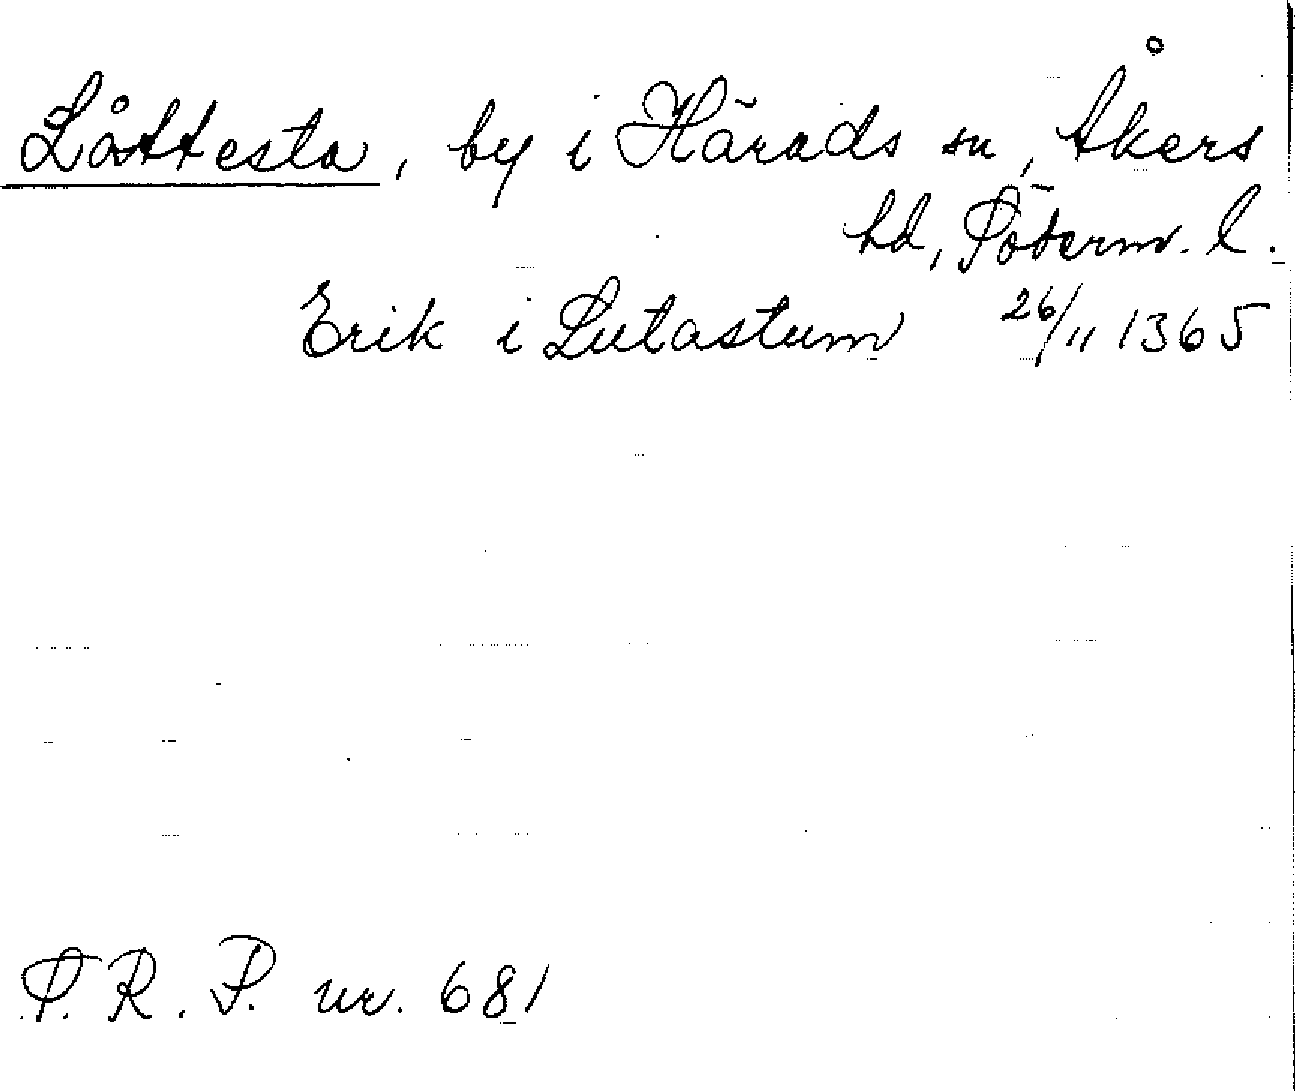 Låttesta, by i Härads sn, Åkers
hd, Söderm. l.
Erik i Lutastum 26/11 1365
S. R. P. nr. 681